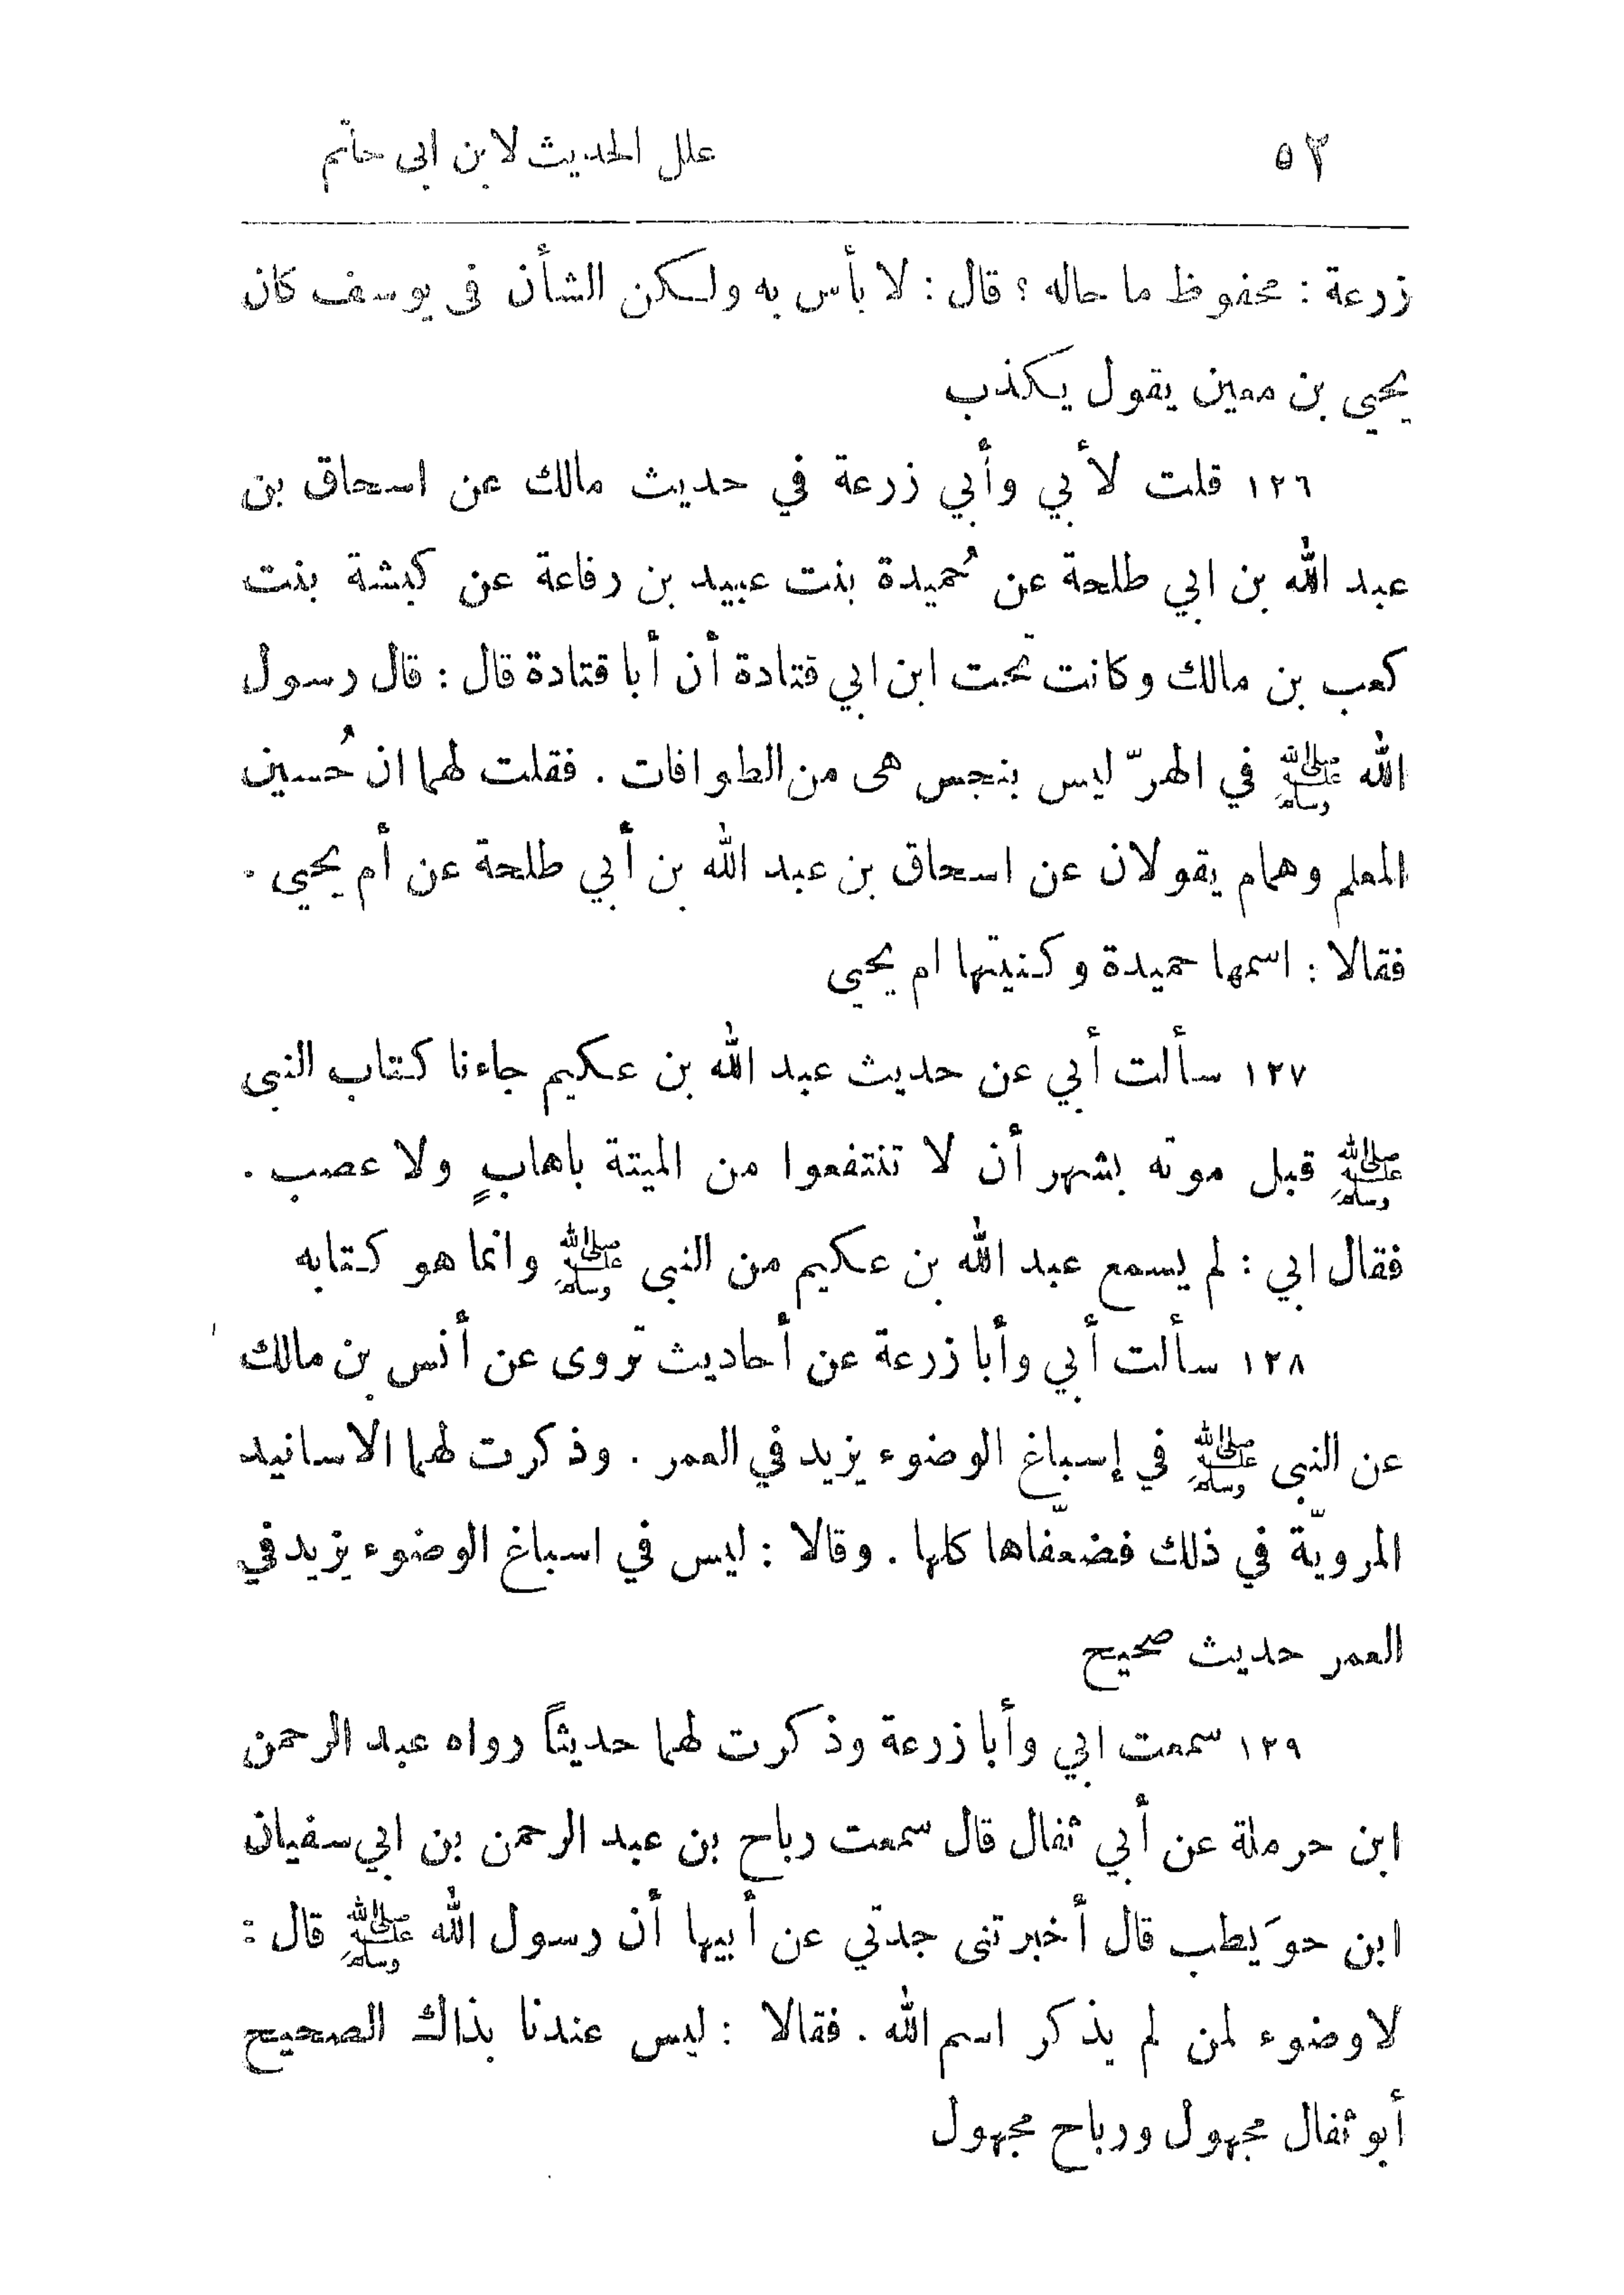 ٥٢ علل الحديث لابن ابى حاتم
زرعة : محفوظ ما حاله ؟ قال : لا بأس به ولكن الشأن فى يوسف كان
يحيى بن معين يقول يكذب
١٢٦ قلت لأبي وأبي زرعة في حديث مالك عن اسحاق بن
عبد الله بن ابي طلحة عن حُميدة بنت عبيد بن رفاعة عن كبشة بنت
كعب بن مالك وكانت تحت ابن ابي قتادة أن أبا قتادة قال : قال رسول
الله ﷺ في الهرّ ليس بنجس هى من الطوافات . فقلت لهما ان حُسين
المعلم وهمام يقولان عن اسحاق بن عبد الله بن أبي طلحة عن أم يحيى .
فقالا : اسمها حميدة وكنيتها ام يحيى
١٢٧ سألت أبي عن حديث عبد الله بن عكيم جاءنا كتاب النبى
ﷺ قبل موته بشهر أن لا تنتفعوا من الميتة باهابٍ ولا عصب .
فقال ابي : لم يسمع عبد الله بن عكيم من النبى ﷺ وانما هو كتابه
١٢٨ سألت أبي وأبا زرعة عن أحاديث تروى عن أنس بن مالك
عن النبى ﷺ في إسباغ الوضوء يزيد في العمر . وذكرت لهما الاسانيد
المرويّة في ذلك فضعّفاها كلها . وقالا : ليس في اسباغ الوضوء يزيد في
العمر حديث صحيح
١٢٩ سمعت ابي وأبا زرعة وذكرت لهما حديثاً رواه عبد الرحمن
ابن حرملة عن أبي ثفال قال سمعت رباح بن عبد الرحمن بن ابي سفيان
ابن حوَيطب قال أخبرتنى جدتي عن أبيها أن رسول الله ﷺ قال :
لا وضوء لمن لم يذكر اسم الله . فقالا : ليس عندنا بذاك الصحيح
أبو ثفال مجهول ورباح مجهول